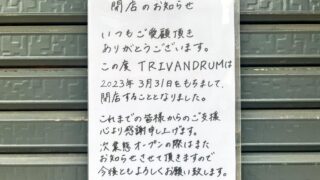 閉店のお知らせ
いつもご愛顧頂き
ありがとうございます。
この度 TRIVANDRUMは
2023年 3月31日をもちまして、
閉店することとなりました。
これまでの皆様からのご支援
心より感謝申し上げます。
次業態オープンの際はまた
お知らせさせて頂きますので
今後ともよろしくお願い致します。